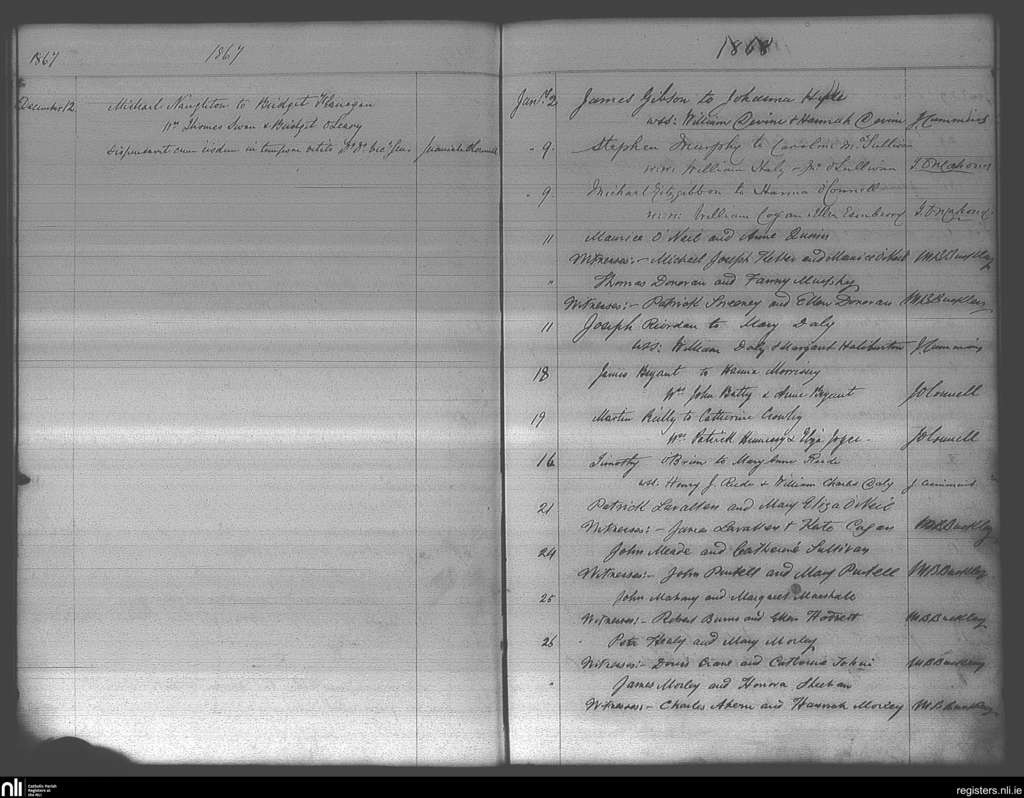 1867
1867
December 12
Michael Naughton to Bridget Flanagan
Ws Thomas Swan & Bridget O'Leary
Dispensavit cum iisdem in tempore vetito
1868
Jany 2
James Gibson to Johanna Hyde
wss: William Devine & Hannah Devine J Cummins
" 9
Stephen Murphy to Caroline McSullivan
W.W: William Haly O'Sullivan T. O'Mahony
" 9
Michael Fitzgibbon to Hanna O'Connell
W.W: William Cogan T. O'Mahony
11
Maurice O'Neil and Anne
Witnesses:- Michael Joseph and Maurice O'Neil M B Buckley
"
Thomas Donovan and Fanny Murphy
Witnesses:- Patrick Sweeney and Ellen Donovan M B Buckley
11
Joseph Riordan to Mary Daly
wss: William Daly & Margaret Haliburton J Cummins
18
James Bryant to Hanna Morrissey
Ws John Batty & Anne Bryant J O'Connell
19
Martin Reilly to Catherine Crowley
Ws Patrick Hennessy & Eliza Joyce - J O'Connell
16
Timothy O'Brien to Mary Anne Reede
wss: Henry J. Reede & William Charles Daly J Cummins
21
Patrick Lavallen and Mary Eliza O'Neil
Witnesses:- James Lavallen & Kate Cogan M B Buckley
24
John Meade and Catherine Sullivan
Witnesses:- John Purtell and Mary Purtell M B Buckley
25
John Mahony and Margaret Marshall
Witnesses:- Robert Burns and Ellen M B Buckley
26
Peter Healy and Mary Morley
Witnesses:- David Crane and Catherine M B Buckley
"
James Morley and Honora Sheehan
Witnesses:- Charles Ahern and Hannah Morley M B Buckley
nli
Catholic Parish
Registers at
the NLI
registers.nli.ie